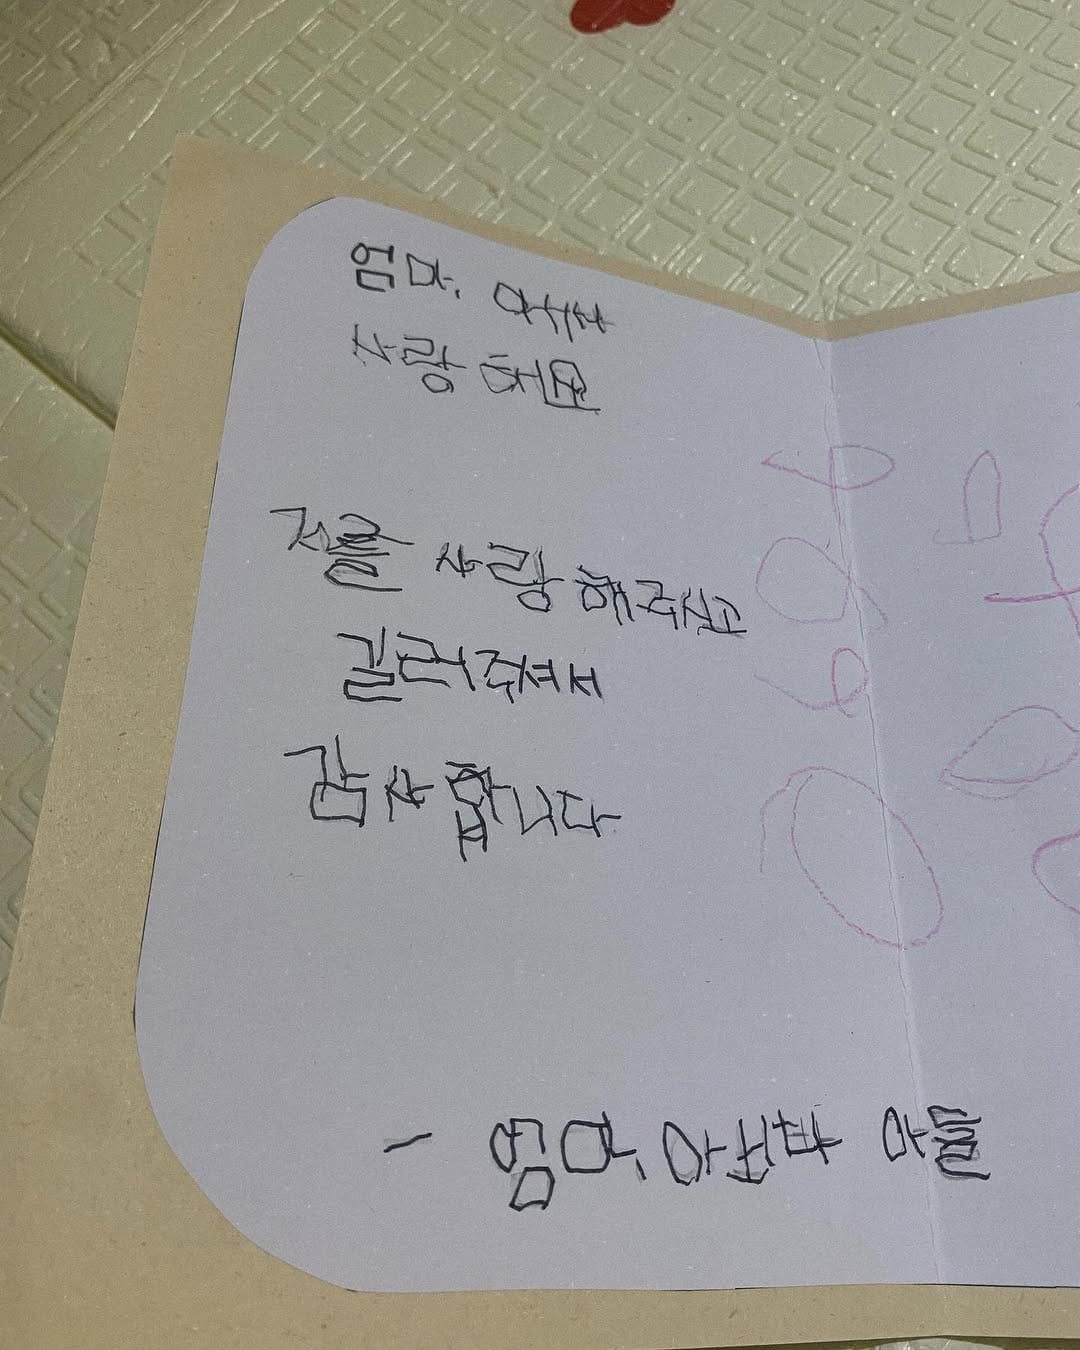 엄마, 아빠
사랑해요
저를 사랑해주시고
길러주셔서
감사합니다
- 엄마, 아빠 아들